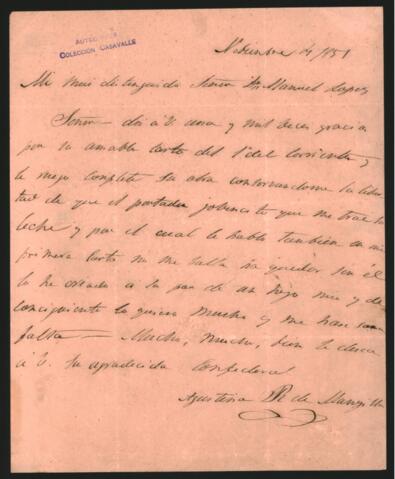 AUTÓGRAFOS
COLECCIÓN CASAVALLE
Nobiembre 4/851
Mi mui distinguido Señor Dn Manuel Lopez
Señor doi á V. una y mil veces gracias
por su amable carta del 1º del corriente, y
le ruego complete su obra conservandome la liber
tad de que el portador jobencito que me trae la
leche y por el cual le hablé tambien en mi
primera carta no me salga
la he criado a la par de un hijo mio y de
consiguiente lo quiero mucho y me hace suma
falta — Mucho, mucho, bien le desea
á V. su agradecida
Agustina R de Mansilla